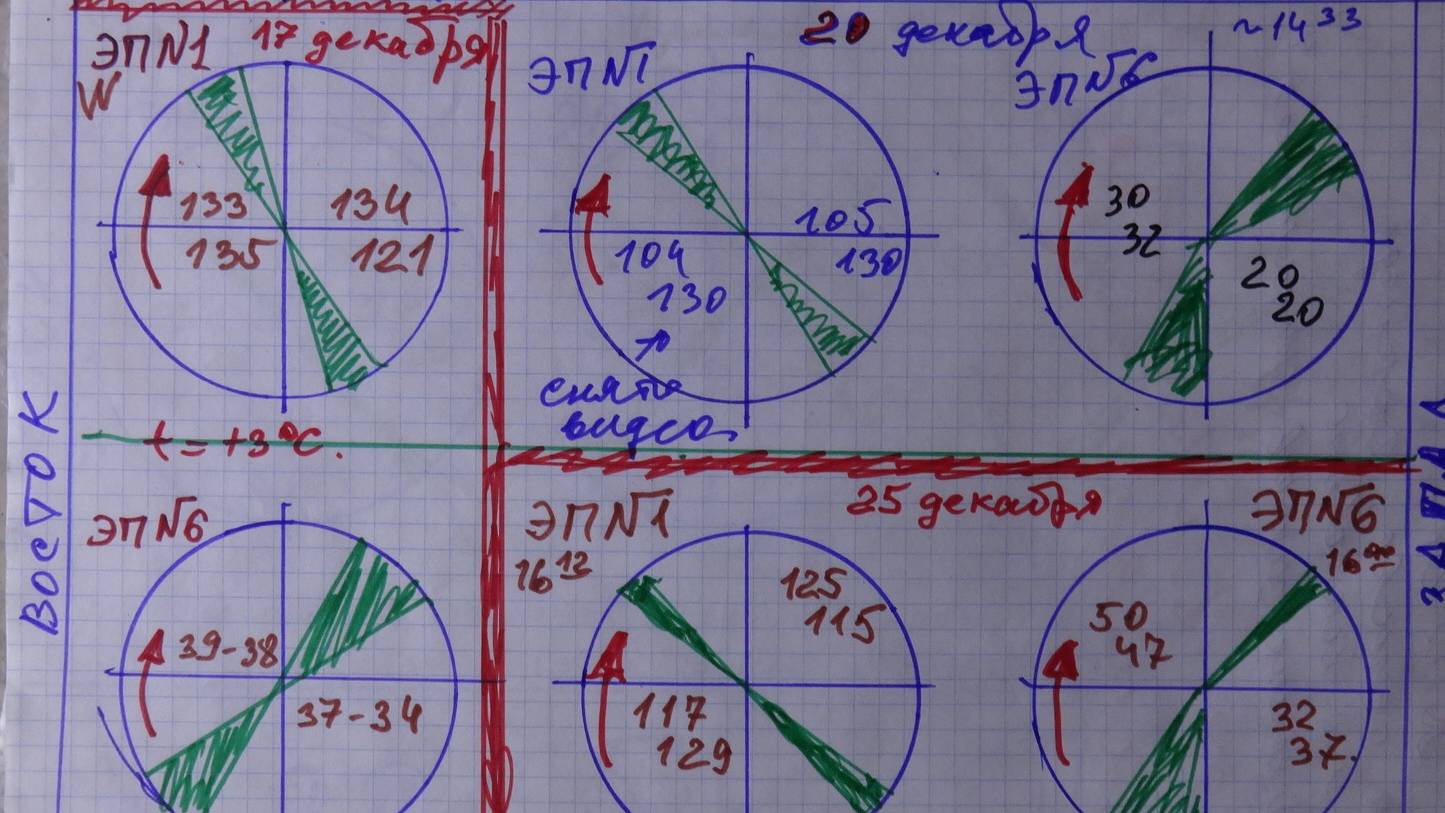 17 декабря
ЭП№1
W
133
135
134
121
t = +3°C.
ЭП№6
39-38
37-34
20 декабря
~14 33
ЭП№1
104
130
105
130
снято
видео
ЭП№6
30
32
20
20
25 декабря
ЭП№1
16 12
125
115
117
129
ЭП№6
50
47
32
37.
ВОСТОК
ЗАПАД